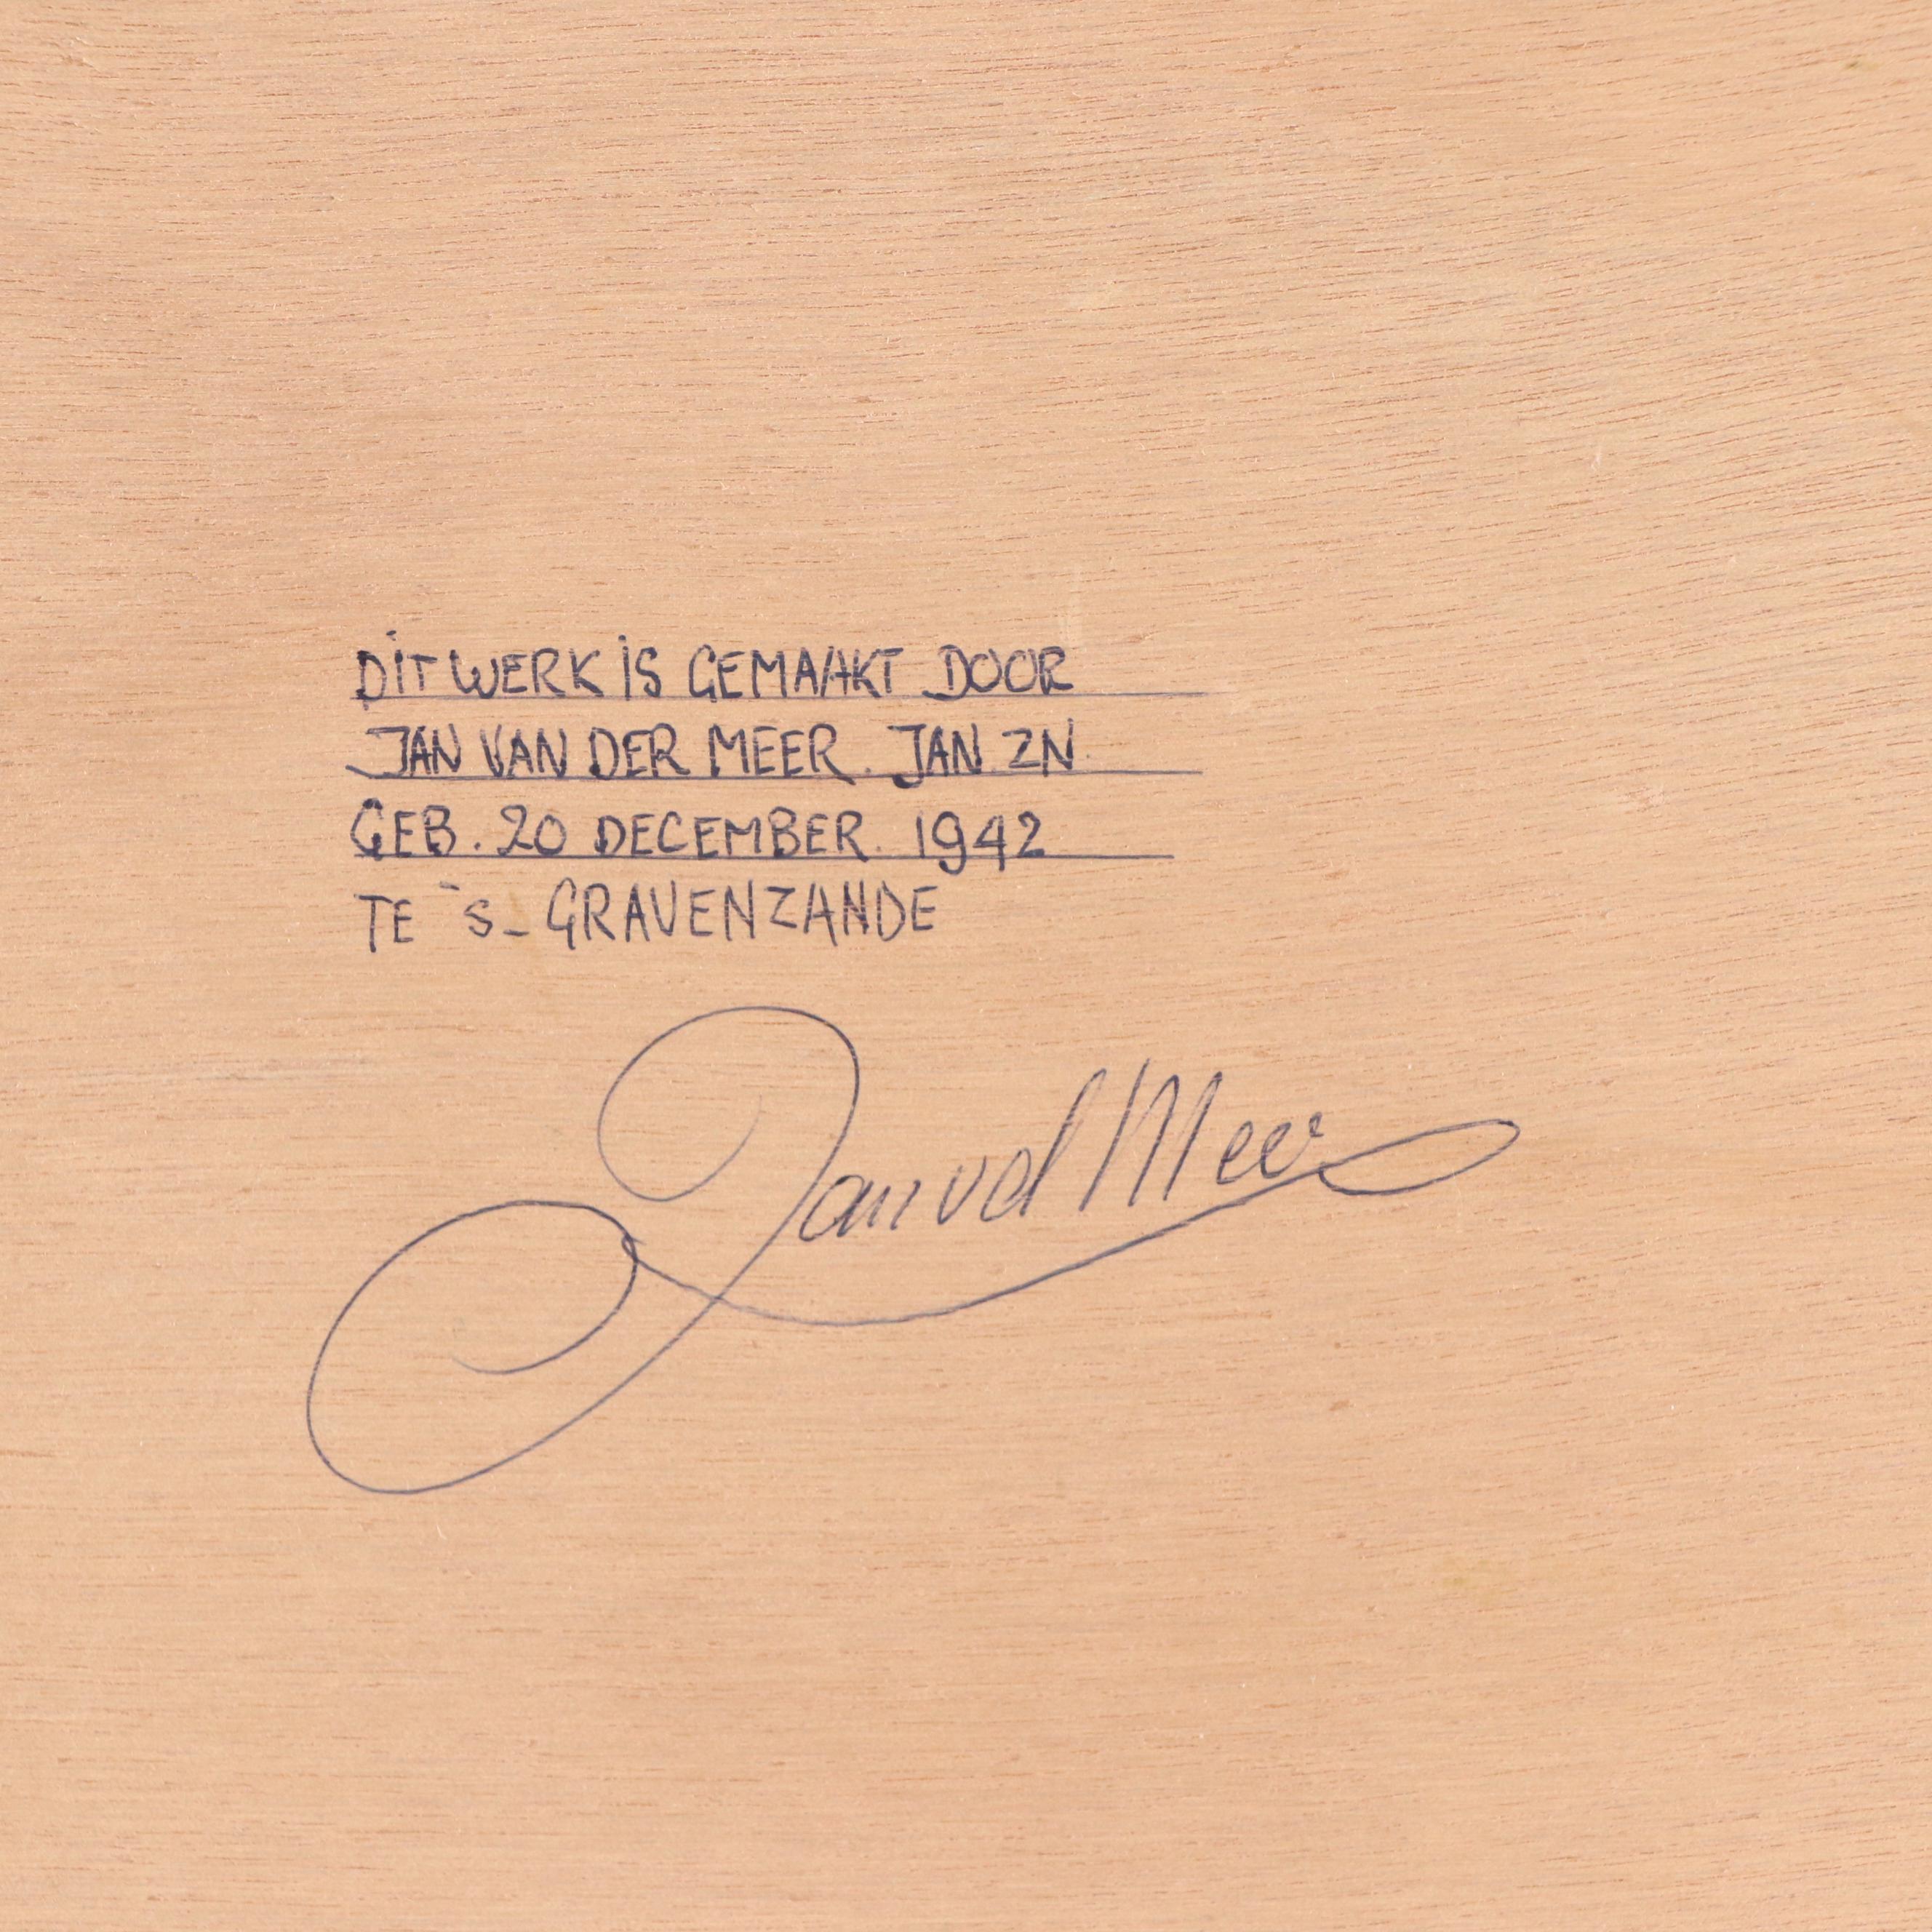 DIT WERK IS GEMAAKT DOOR
JAN VAN DER MEER. JAN. ZN.
GEB. 20 DECEMBER. 1942
TE 's-GRAVENZANDE
Jan vd Meer